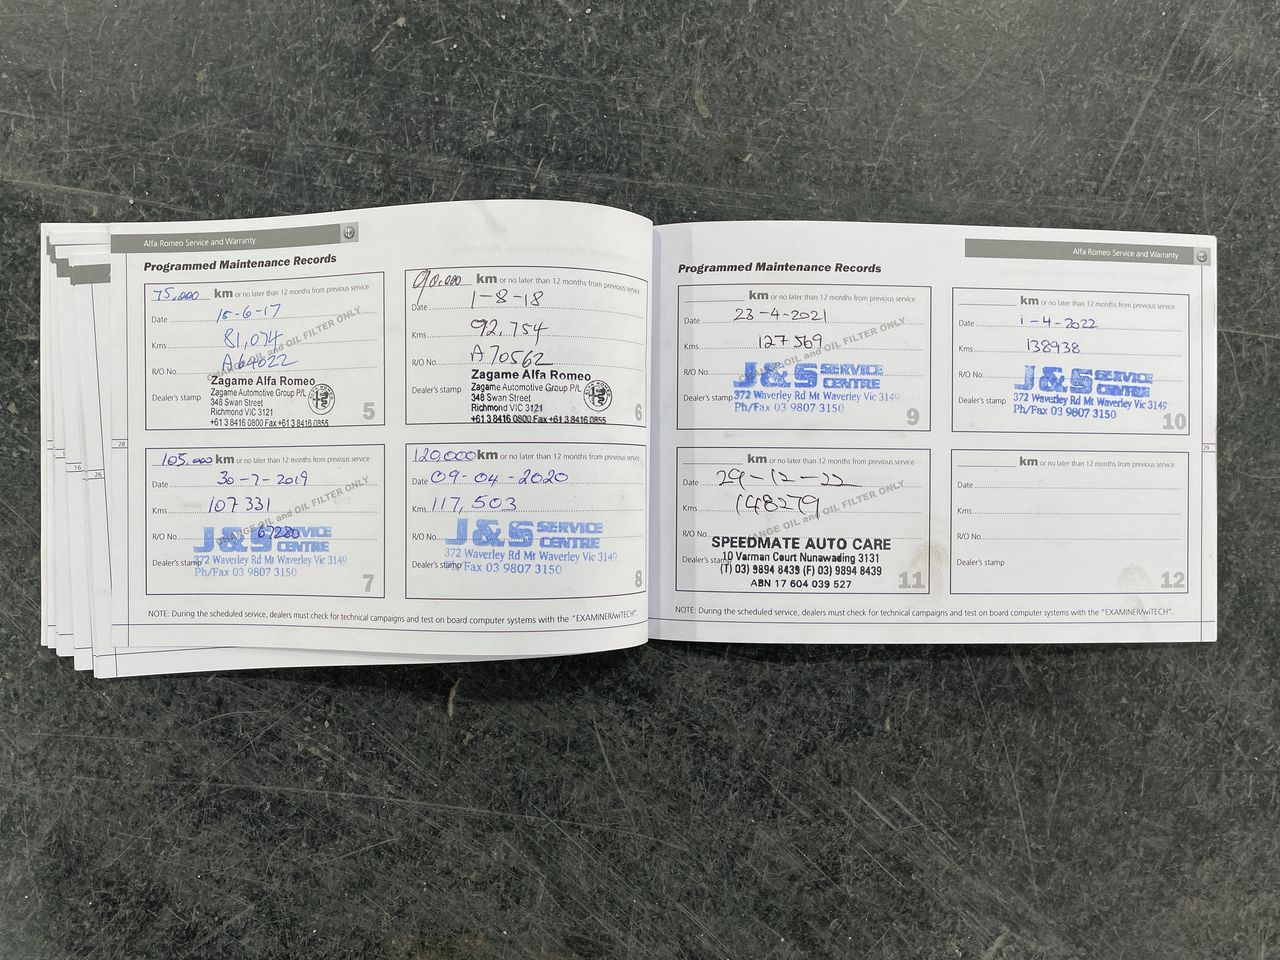 Alfa Romeo Service and Warranty
Programmed Maintenance Records
75,000 km or no later than 12 months from previous service
Date 15-6-17
Kms 81,074
R/O No. A64022
CHANGE OIL and OIL FILTER ONLY
Dealer's stamp
Zagame Alfa Romeo
Zagame Automotive Group P/L
348 Swan Street
Richmond VIC 3121
+61 3 8416 0800 Fax +61 3 8416 0855
5
90,000 km or no later than 12 months from previous service
Date 1-8-18
Kms 92,754
R/O No. A70562
Dealer's stamp
Zagame Alfa Romeo
Zagame Automotive Group P/L
348 Swan Street
Richmond VIC 3121
+61 3 8416 0800 Fax +61 3 8416 0855
6
105,000 km or no later than 12 months from previous service
Date 30-7-2019
Kms 107331
R/O No. 67280
CHANGE OIL and OIL FILTER ONLY
Dealer's stamp
J&S SERVICE CENTRE
372 Waverley Rd Mt Waverley Vic 3149
Ph/Fax 03 9807 3150
7
120,000 km or no later than 12 months from previous service
Date 09-04-2020
Kms 117,503
R/O No.
Dealer's stamp
J&S SERVICE CENTRE
372 Waverley Rd Mt Waverley Vic 3149
Ph/Fax 03 9807 3150
8
NOTE: During the scheduled service, dealers must check for technical campaigns and test on board computer systems with the "EXAMINER/wiTECH".
28
16
26
Alfa Romeo Service and Warranty
Programmed Maintenance Records
km or no later than 12 months from previous service
Date 23-4-2021
Kms 127569
R/O No.
CHANGE OIL and OIL FILTER ONLY
Dealer's stamp
J&S SERVICE CENTRE
372 Waverley Rd Mt Waverley Vic 3149
Ph/Fax 03 9807 3150
9
km or no later than 12 months from previous service
Date 1-4-2022
Kms 138938
R/O No.
Dealer's stamp
J&S SERVICE CENTRE
372 Waverley Rd Mt Waverley Vic 3149
Ph/Fax 03 9807 3150
10
km or no later than 12 months from previous service
Date 29-12-22
Kms 148279
R/O No.
CHANGE OIL and OIL FILTER ONLY
Dealer's stamp
SPEEDMATE AUTO CARE
10 Varman Court Nunawading 3131
(T) 03) 9894 8439 (F) 03) 9894 8439
ABN 17 604 039 527
11
km or no later than 12 months from previous service
Date
Kms
R/O No.
Dealer's stamp
12
NOTE: During the scheduled service, dealers must check for technical campaigns and test on board computer systems with the "EXAMINER/wiTECH".
29